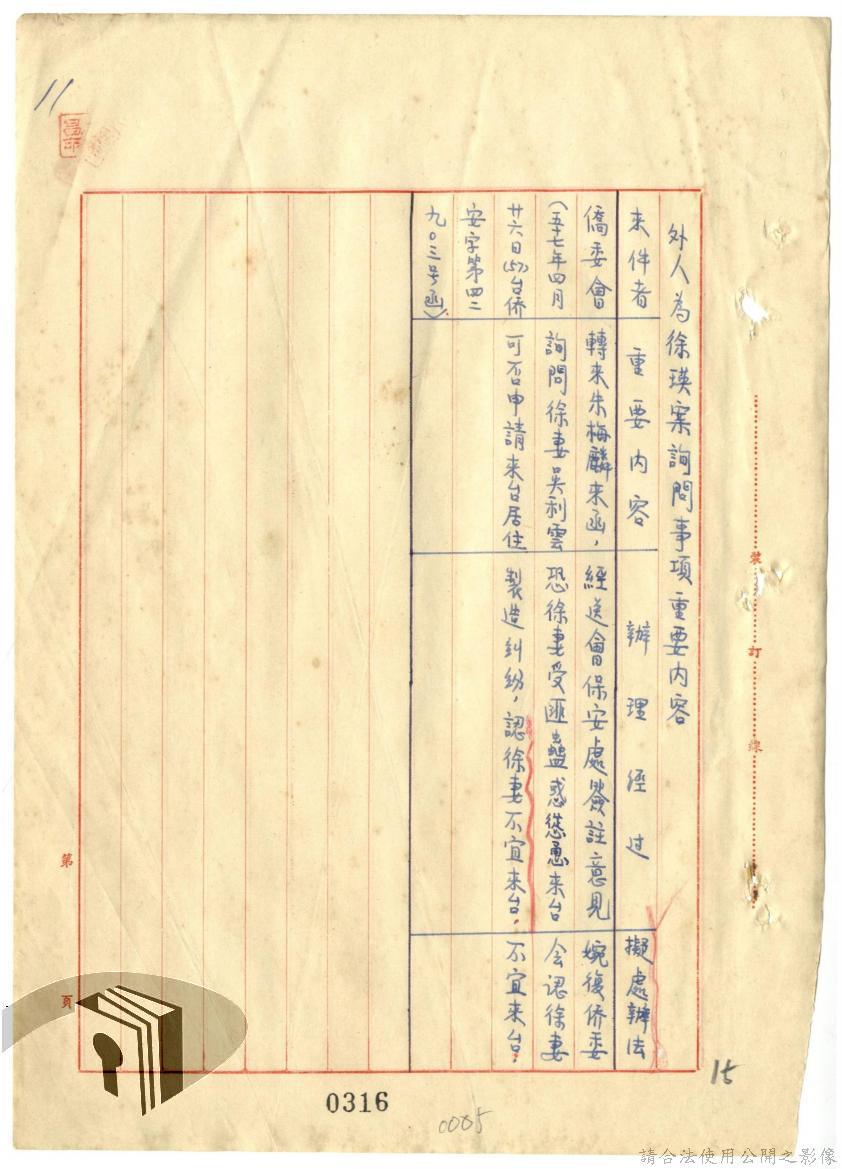 外人為徐瑛案詢問事項重要內容
來件者
重要內容
辦理經过
擬處辦法
僑委會
(五十七年四月
廿六日(57)台僑
安字第四二
九〇三号函)
轉來朱梅麟來函，
詢問徐妻吳利雲
可否申請來台居住
經送會保安處簽註意見
恐徐妻受匪蠱惑慫恿來台
製造糾紛，認徐妻不宜來台，
婉復侨委
会認徐妻
不宜來台。
裝
訂
線
第
頁
11
15
0316
0005
請合法使用公開之影像